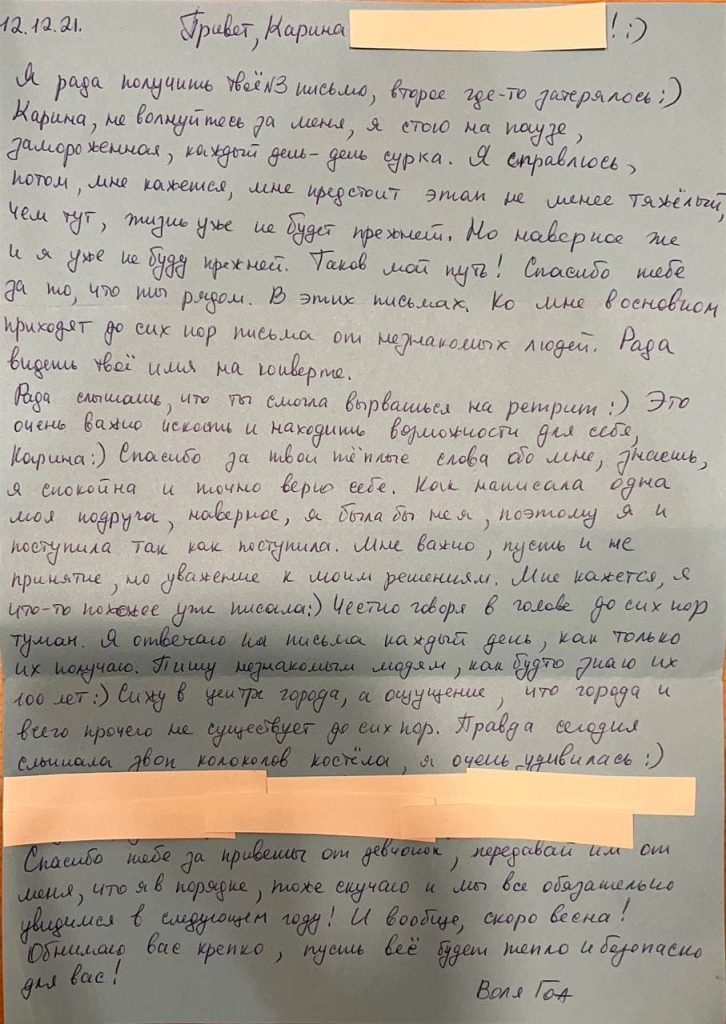 12.12.21. Привет, Карина ! :)
Я рада получить твоё №3 письмо, второе где-то затерялось :)
Карина, не волнуйтесь за меня, я стою на паузе,
замороженная, каждый день - день сурка. Я справлюсь,
потом, мне кажется, мне предстоит этап не менее тяжёлый,
чем тут, жизнь уже не будет прежней. Но наверное же
и я уже не буду прежней. Таков мой путь! Спасибо тебе
за то, что ты рядом. В этих письмах. Ко мне в основном
приходят до сих пор письма от незнакомых людей. Рада
видеть твоё имя на конверте.
Рада слышать, что ты смогла вырваться на ретрит :) Это
очень важно искать и находить возможности для себя,
Карина :) Спасибо за твои тёплые слова обо мне, знаешь,
я спокойна и точно верю себе. Как написала одна
моя подруга, наверное, я была бы не я, поэтому я и
поступила так как поступила. Мне важно, пусть и не
принятие, но уважение к моим решениям. Мне кажется, я
что-то похожее уже писала :) Честно говоря в голове до сих пор
туман. Я отвечаю на письма каждый день, как только
их получаю. Пишу незнакомым людям, как будто знаю их
100 лет :) Сижу в центре города, а ощущение, что города и
всего прочего не существует до сих пор. Правда сегодня
слышала звон колоколов костёла, я очень удивилась :)
Спасибо тебе за приветы от девчонок, передавай им от
меня, что я в порядке, тоже скучаю и мы все обязательно
увидимся в следующем году! И вообще, скоро весна!
Обнимаю вас крепко, пусть всё будет тепло и безопасно
для вас!
Воля Гоа